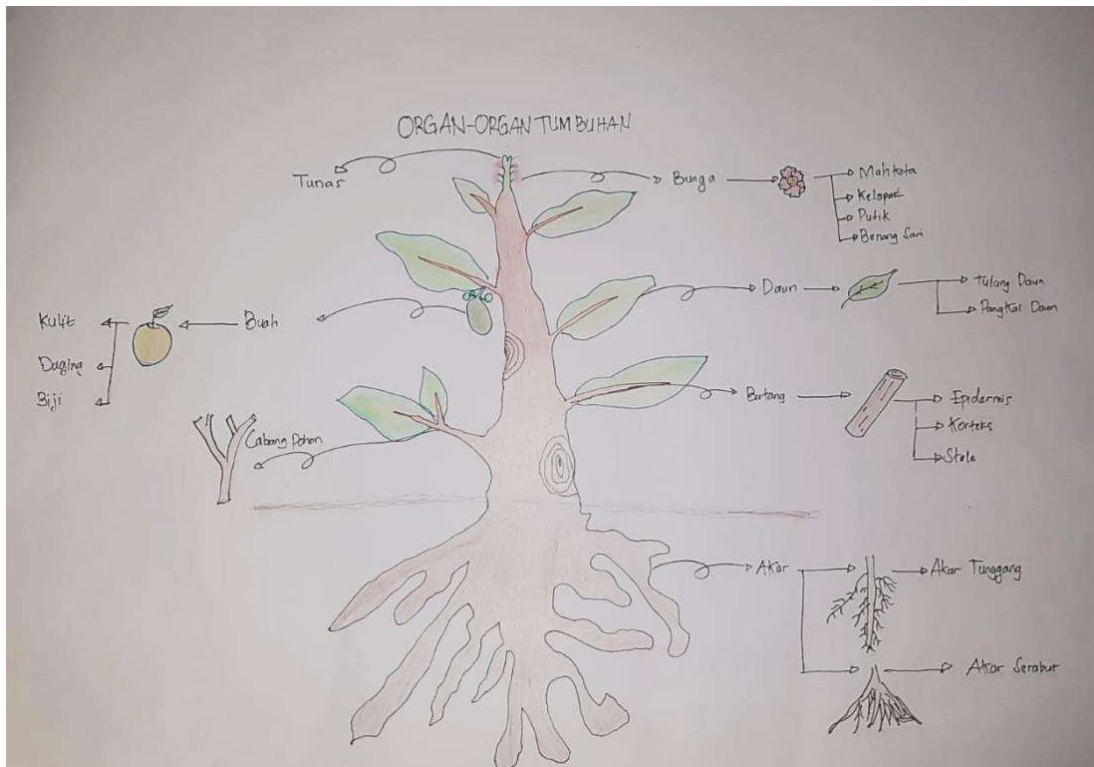 ORGAN-ORGAN TUMBUHAN
Tunas
Bunga
Mahkota
Kelopak
Putik
Benang Sari
Daun
Tulang Daun
Pangkal Daun
Buah
Kulit
Daging
Biji
Batang
Epidermis
Korteks
Stele
Cabang Pohon
Akar
Akar Tunggang
Akar Serabut